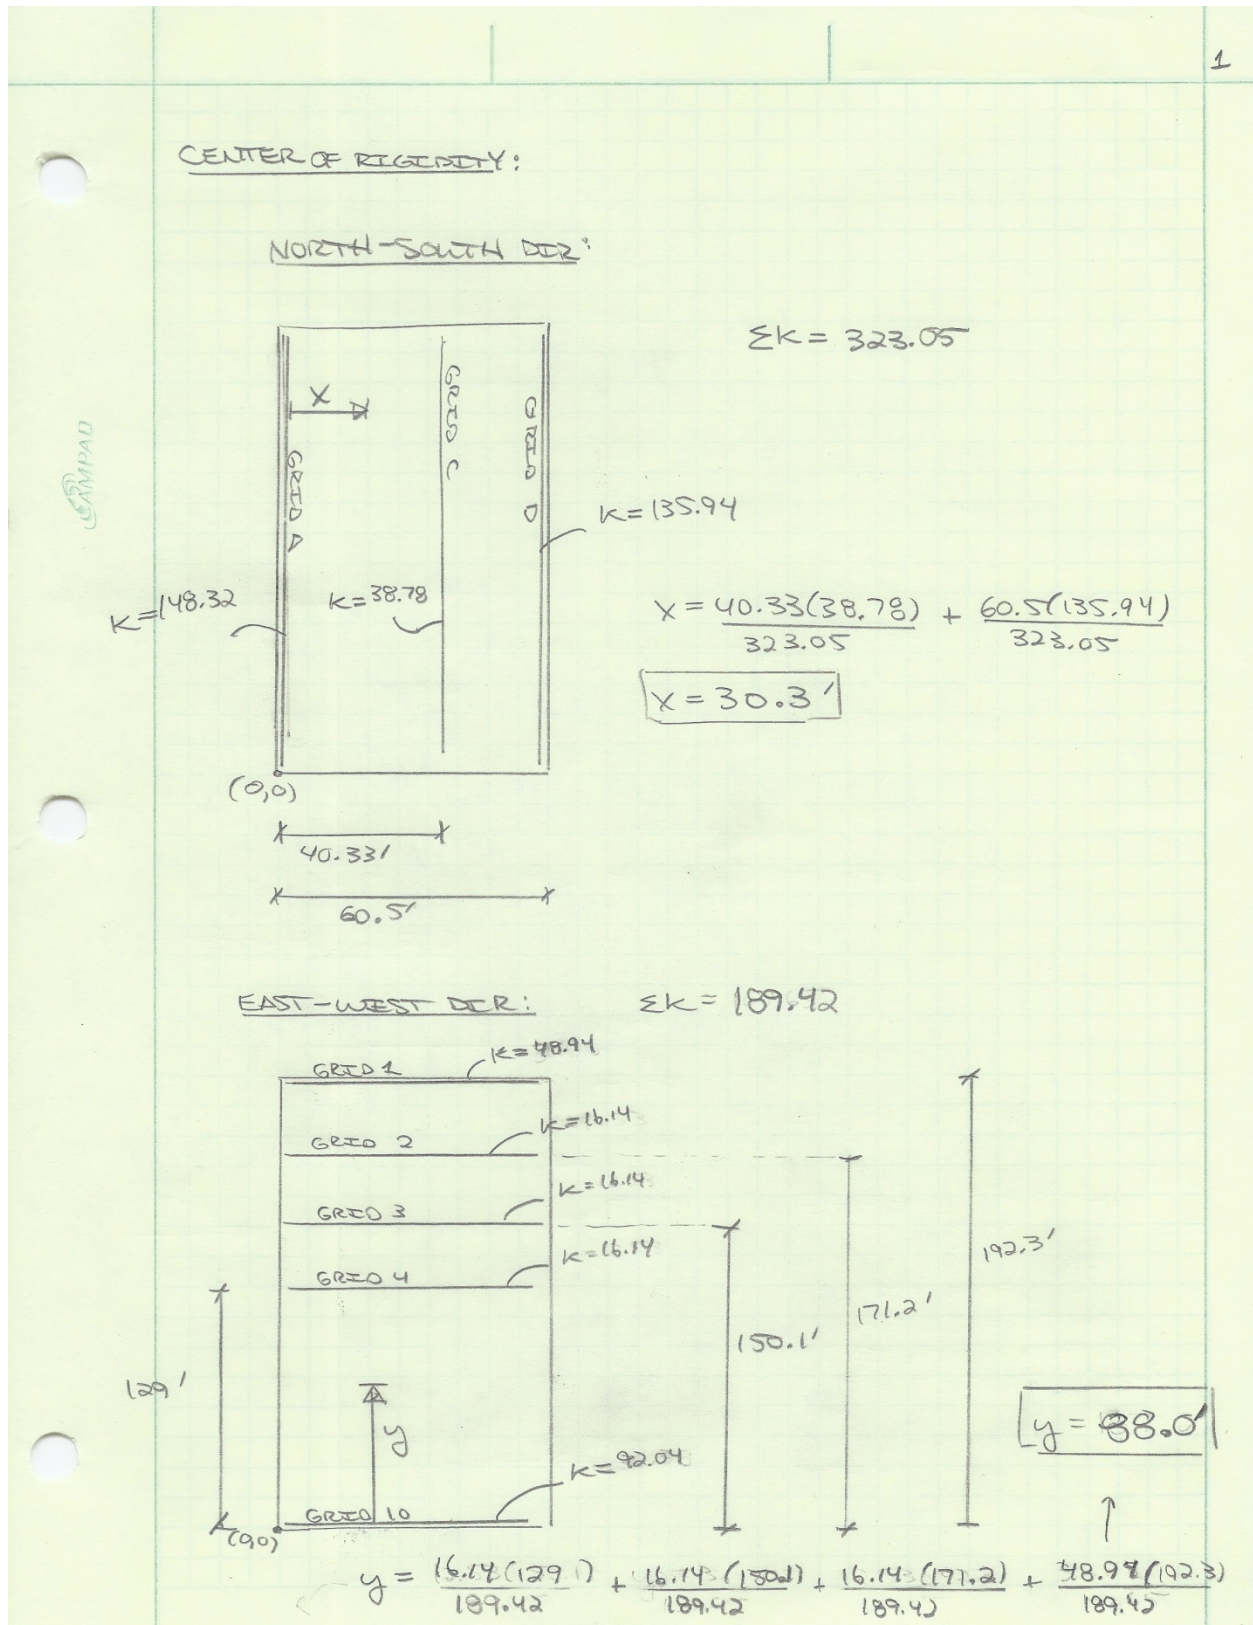 1
CENTER OF RIGIDITY:
NORTH-SOUTH DIR:
ΣK = 323.05
X
GRID A
GRID C
GRID D
K=135.94
K=148.32
K=38.78
X = 40.33(38.78) / 323.05 + 60.5(135.94) / 323.05
X = 30.3'
(0,0)
40.33'
60.5'
CAMPAD
EAST-WEST DIR:
ΣK = 189.42
GRID 1
K=48.94
GRID 2
K=16.14
GRID 3
K=16.14
GRID 4
K=16.14
192.3'
171.2'
150.1'
129'
y
y = 88.0'
K=92.04
GRID 10
(0,0)
y = 16.14(129) / 189.42 + 16.14(150.1) / 189.42 + 16.14(171.2) / 189.42 + 48.94(192.3) / 189.42